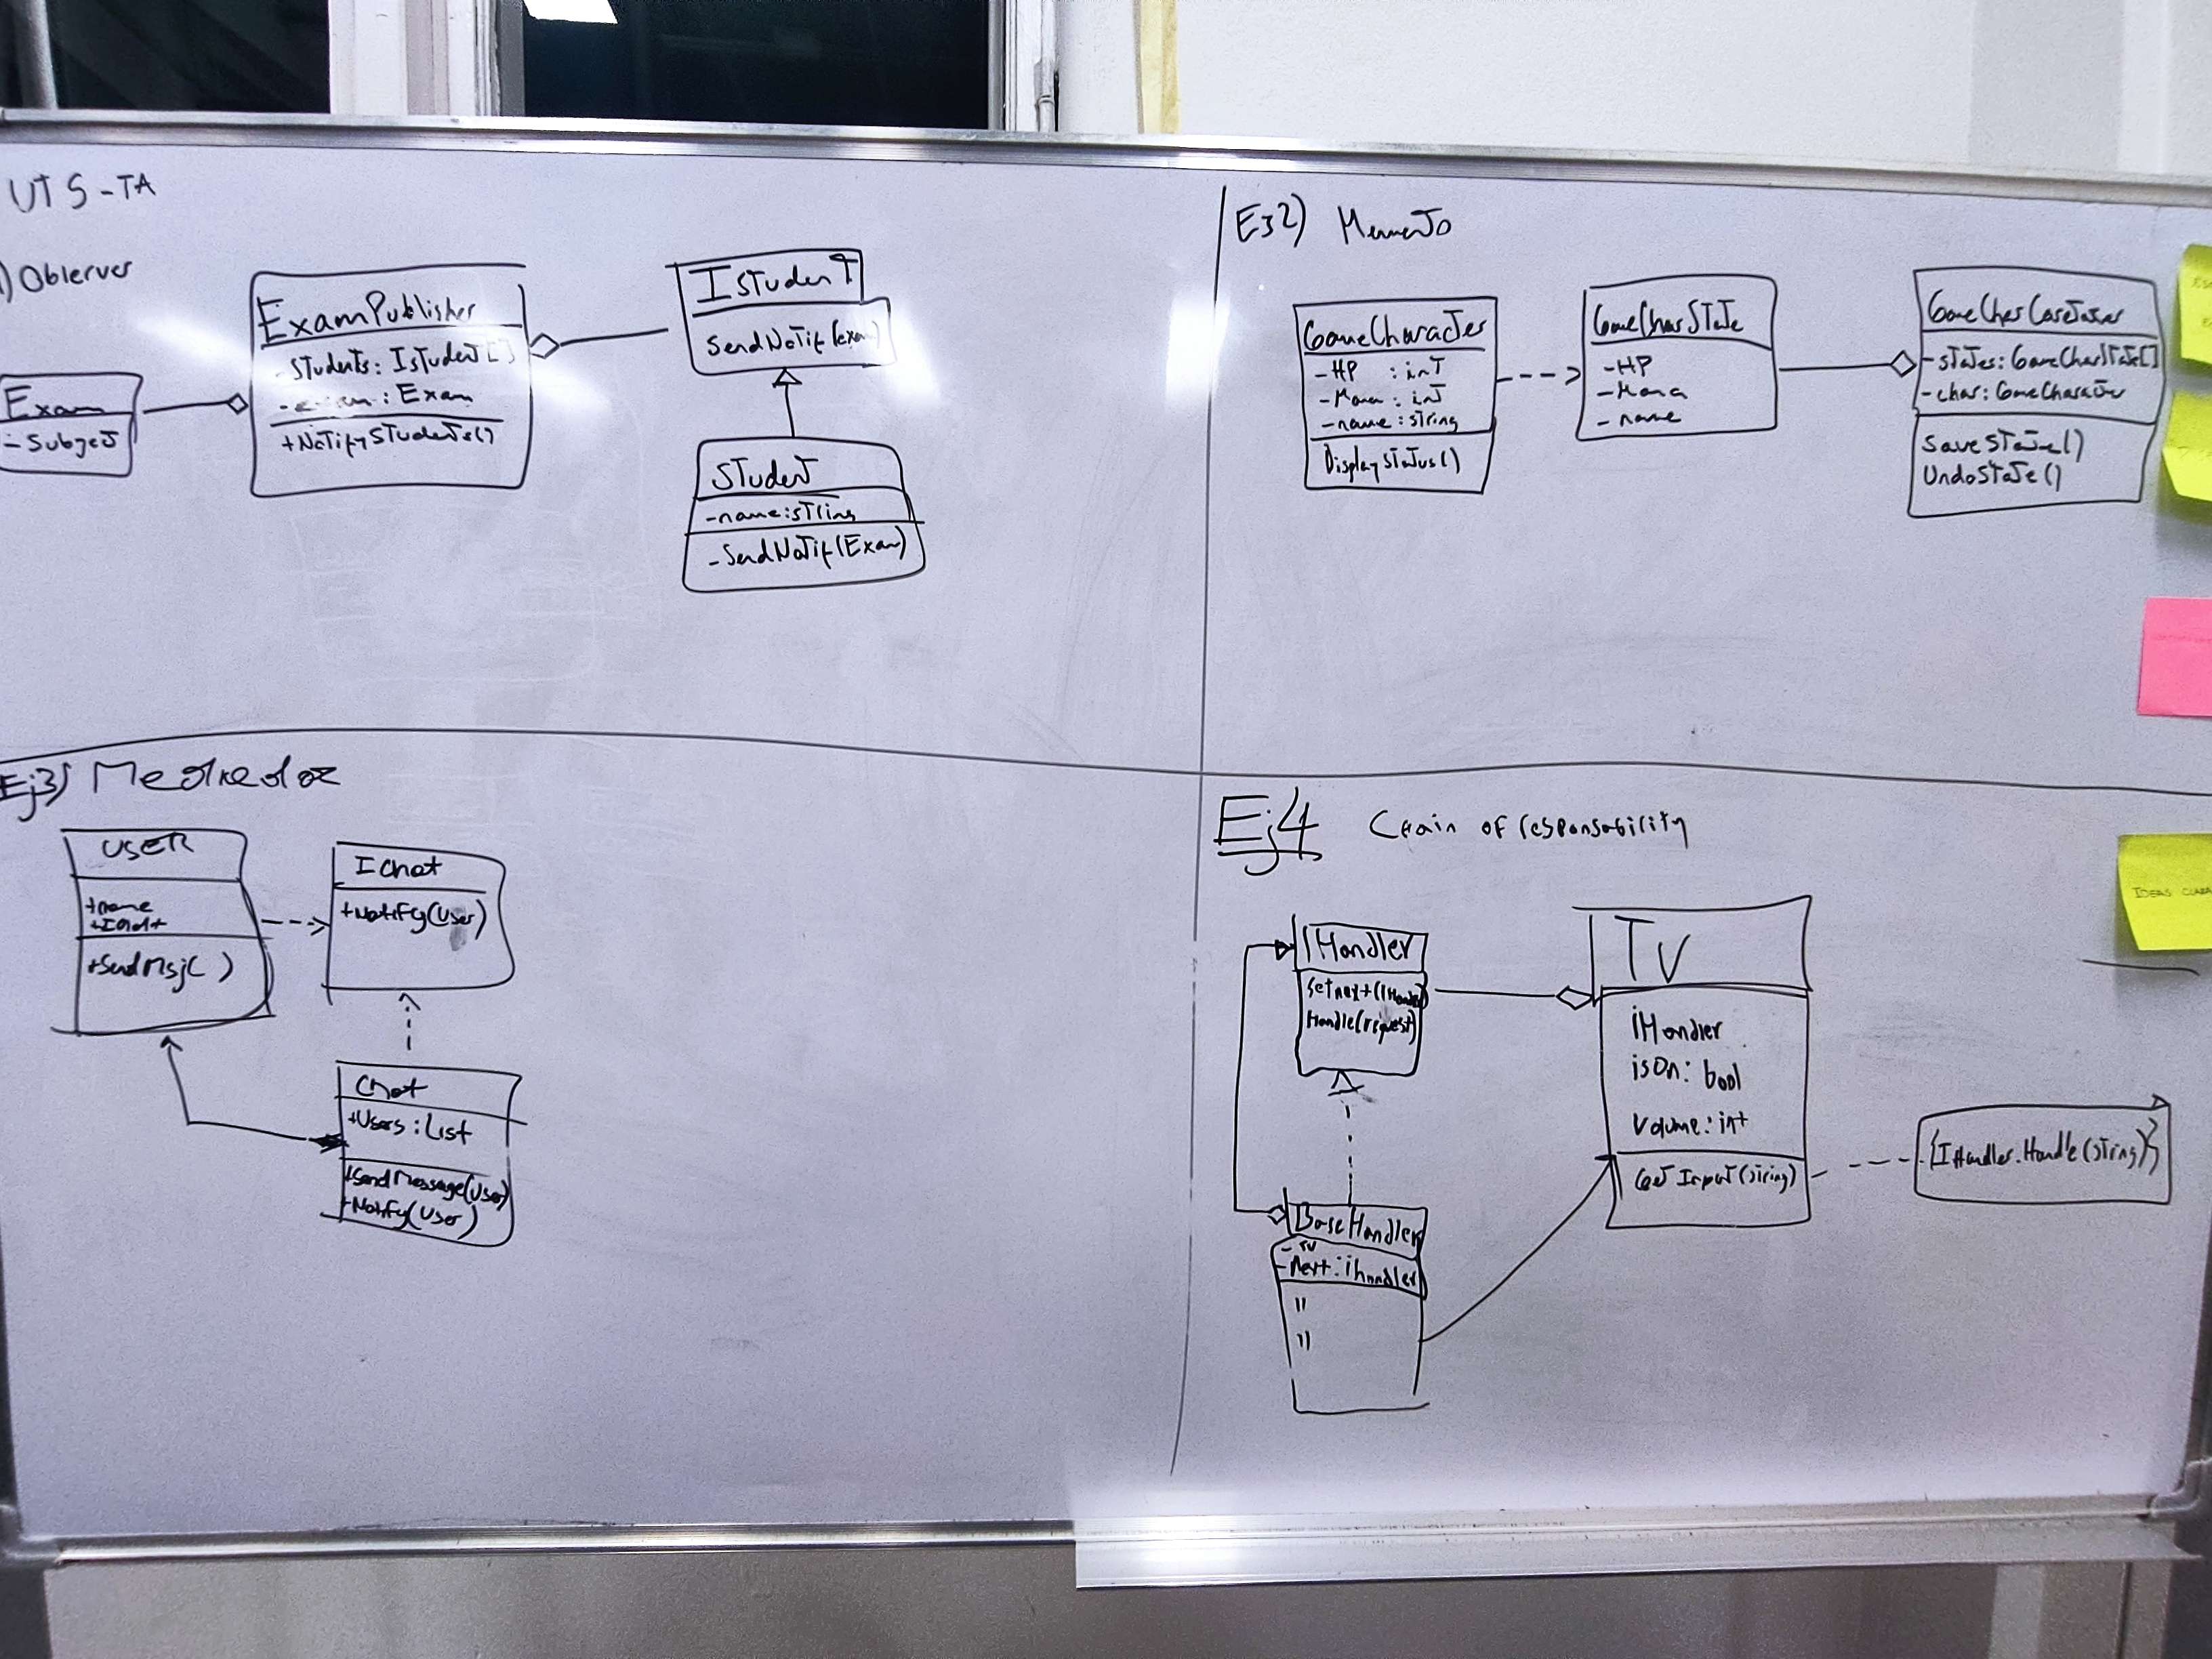 UT5-TA
) Observer
Exam
- Subject
ExamPublisher
- students: IStudent[]
: Exam
+NotifyStudents()
IStudent
SendNotif(exam)
Student
-name:string
-SendNotif(Exam)
Ej2) Memento
GameCharacter
-HP : int
-Mana : int
-name:string
DisplayStatus()
GameCharState
-HP
-Mana
-name
-states:GameCharState[]
-char:GameCharacter
SaveState()
UndoState()
Ej3)
USER
+name
+IChat
+SendMsj( )
IChat
+Notify(User)
Chat
+Users:List
+SendMessage(User)
+Notify(User)
Ej4 Chain of responsability
IHandler
Setnext(IHandler)
Handle(request)
BaseHandler
- TV
-Next:ihandler
"
"
TV
iHandler
isOn: bool
Volume:int
Get Input(string)
{IHandler.Handle(string)}